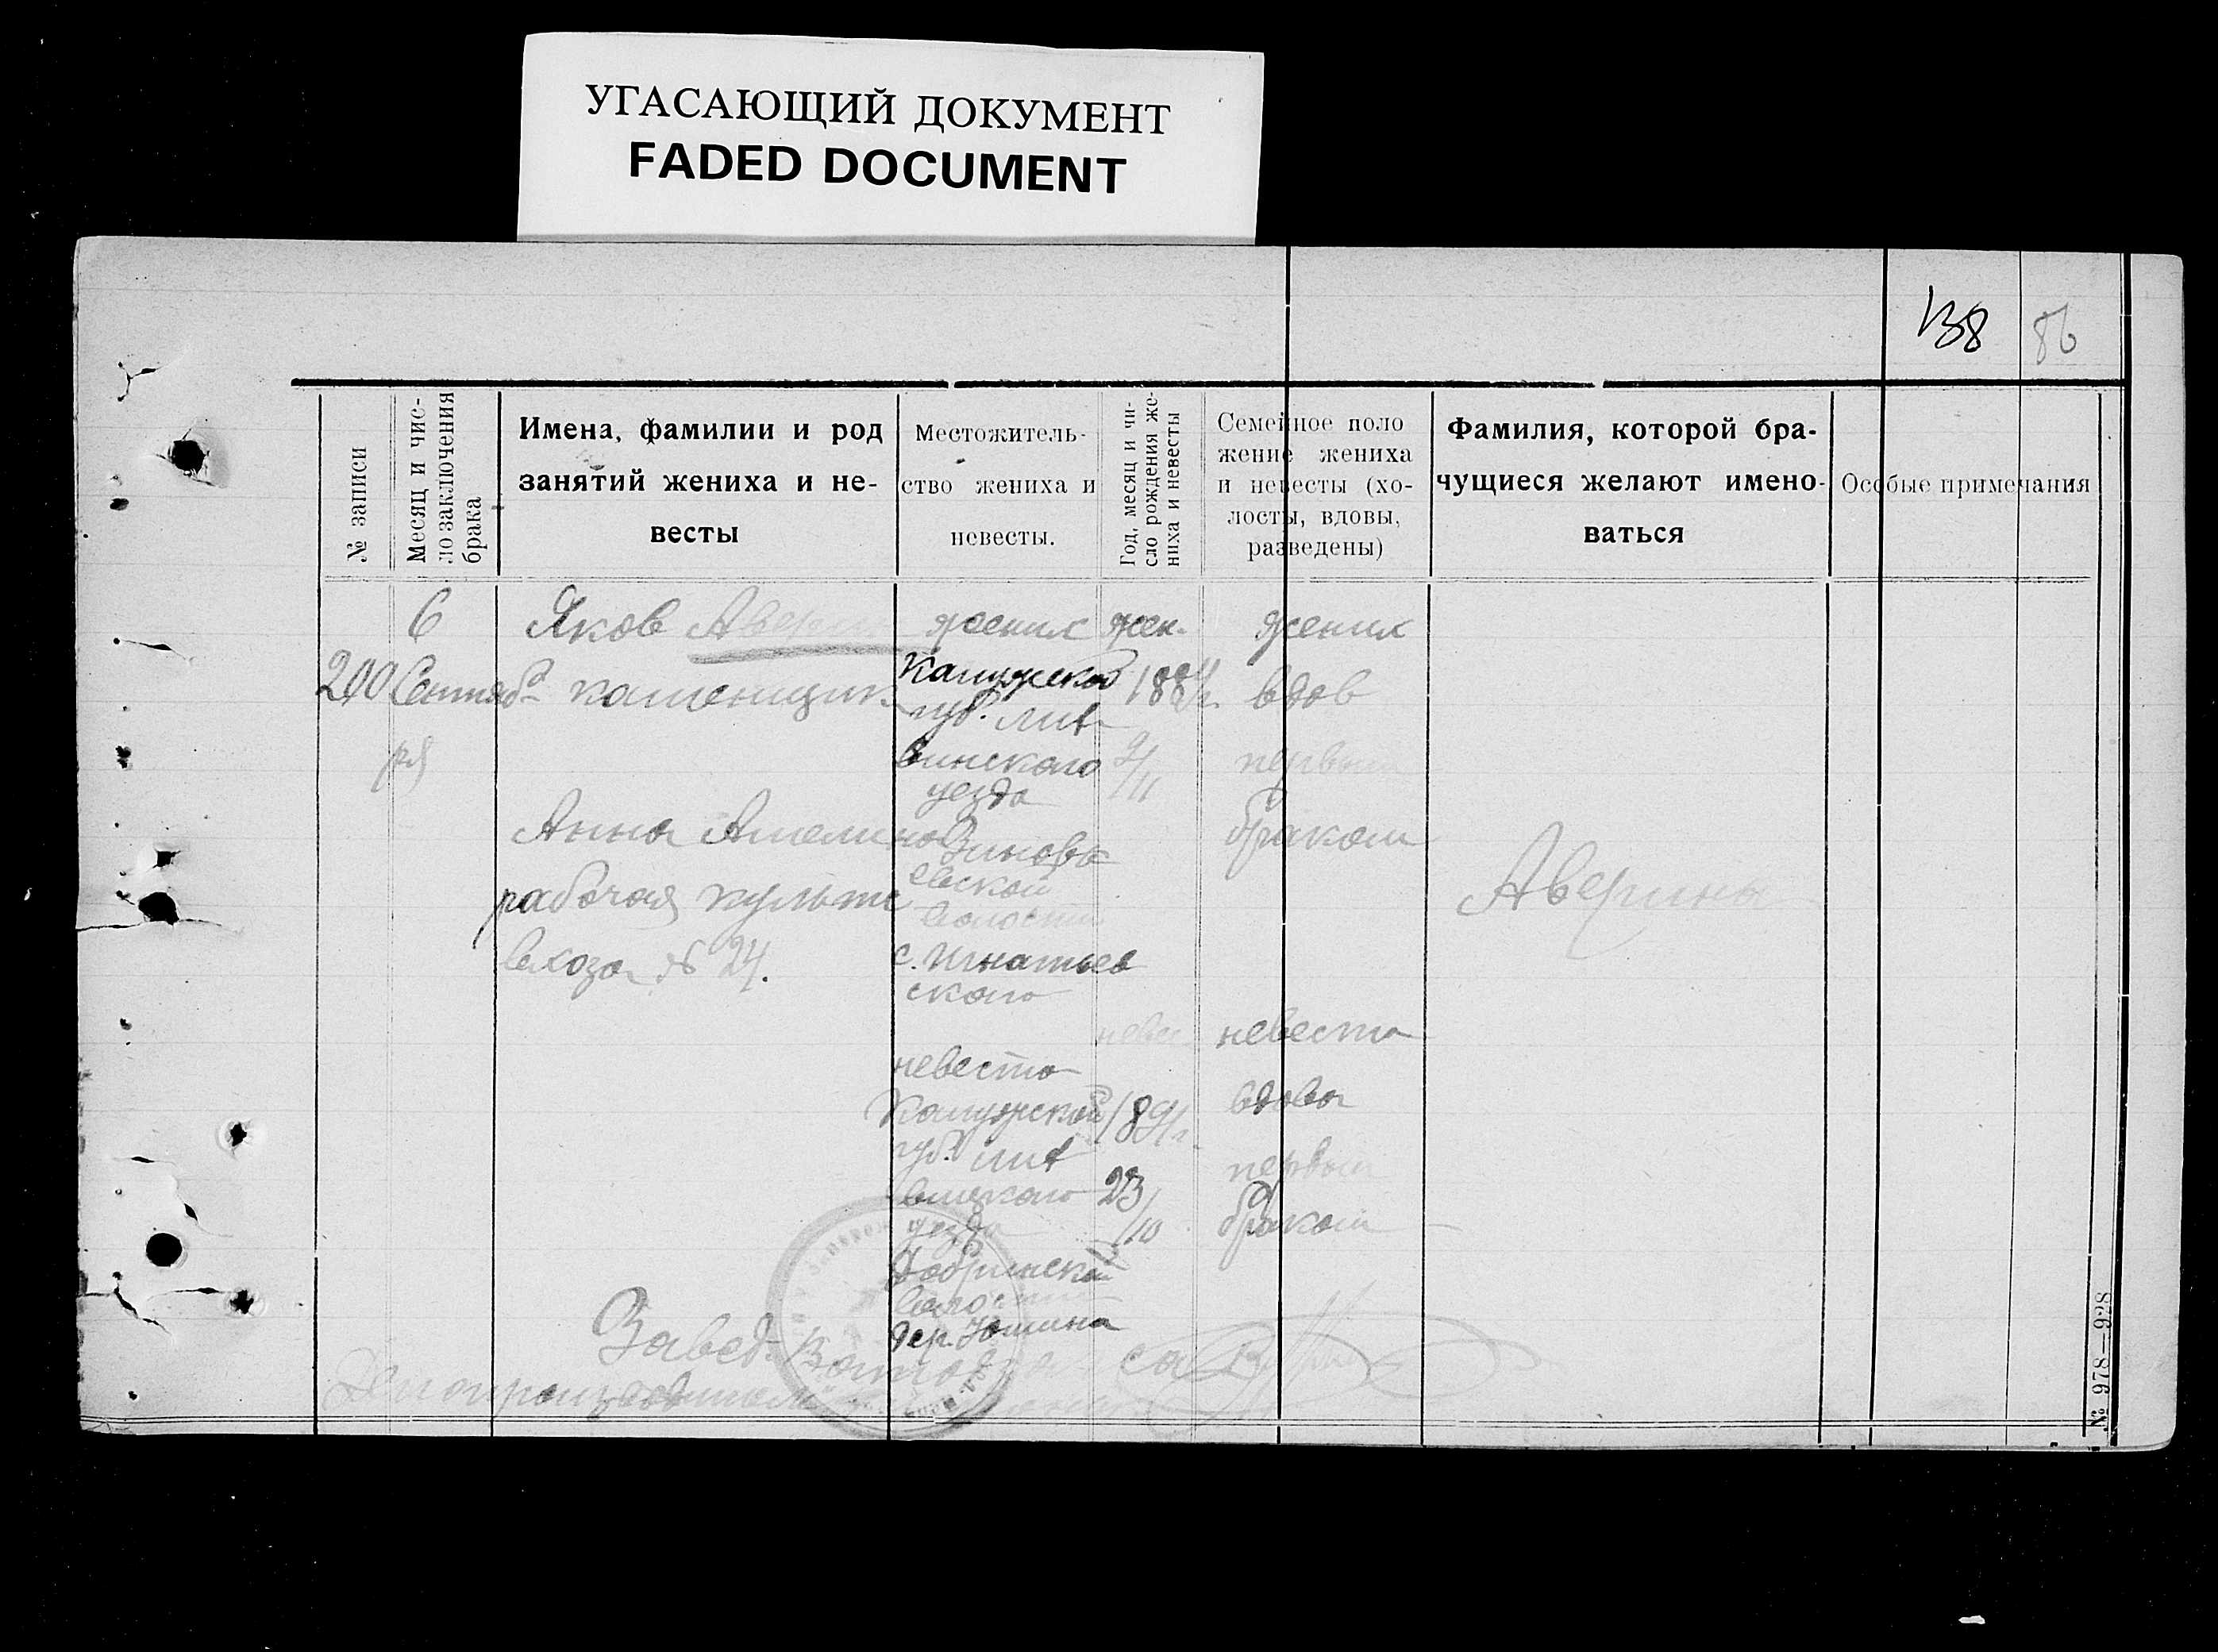 УГАСАЮЩИЙ ДОКУМЕНТ
FADED DOCUMENT
138
86
№ записи
Месяц и чис-
ло заключения
брака
Имена, фамилии и род
занятий жениха и не-
весты
Местожитель-
ство жениха и
невесты.
Год, месяц и чи-
сло рождения же-
ниха и невесты
Семейное поло
жение жениха
и невесты (хо-
лосты, вдовы,
разведены)
Фамилия, которой бра-
чущиеся желают имено-
ваться
Особые примечания
200
6
Сентяб
ря
Яков
каменщик
Анна Амелина
рабочая культ
№ 24.
жених
Калужской
губ. Лих
винского
уезда
Зиновь
евской
волости
с. Игнатьев
ского
невеста
Калужской
губ. Лих
винского
уезда
волости
жен.
1884 г.
9/11
невес
1891 г.
23/10
жених
вдов
первым
браком
невеста
вдова
первым
браком
Аверины
Завед.
Делопроизводитель
№ 978—928